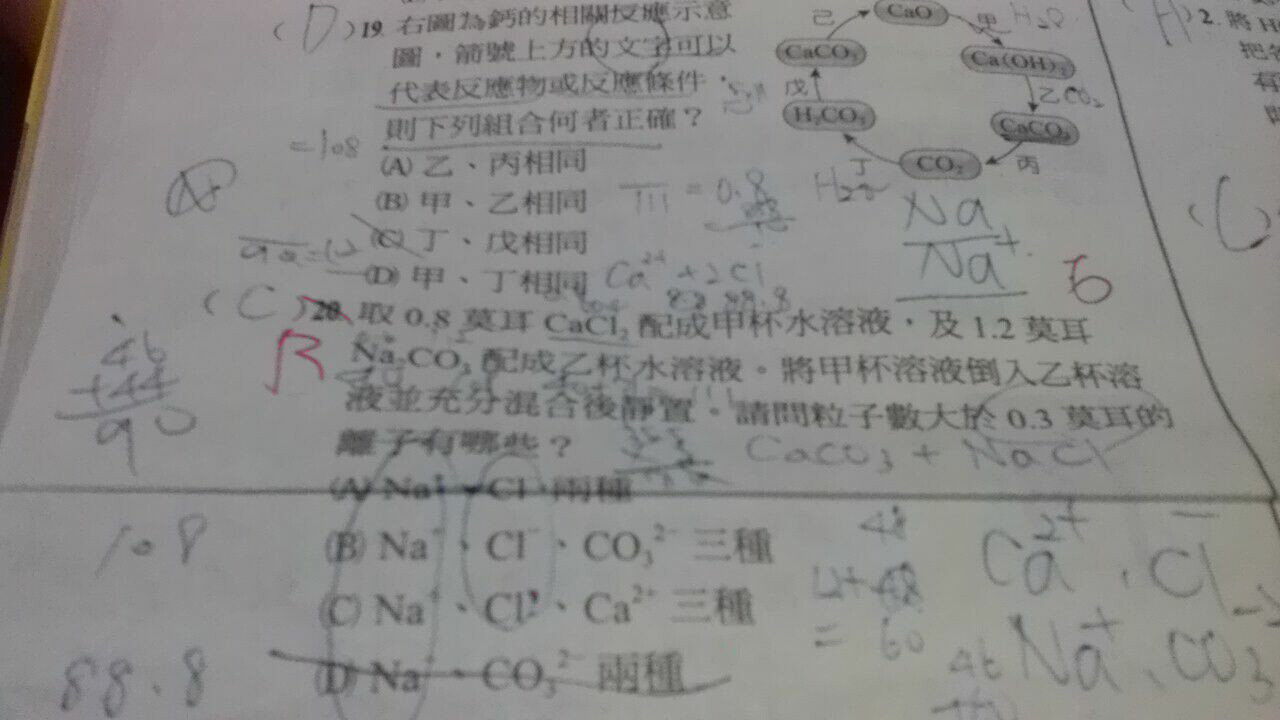 (D)19. 右圖為鈣的相關反應示意
圖，箭號上方的文字可以
代表反應物或反應條件，
則下列組合何者正確？
(A) 乙、丙相同
(B) 甲、乙相同
(C) 丁、戊相同
(D) 甲、丁相同
己
CaO
甲 H₂O
CaCO₃
Ca(OH)₂
戊
乙 CO₂
H₂CO₃
CaCO₃
丁
CO₂
丙
H₂O
= 108
= 0.8
Na
Na⁺
Ca²⁺ + 2Cl
88.8
(C)20. 取 0.8 莫耳 CaCl₂ 配成甲杯水溶液，及 1.2 莫耳
Na₂CO₃ 配成乙杯水溶液。將甲杯溶液倒入乙杯溶
液並充分混合後靜置。請問粒子數大於 0.3 莫耳的
離子有哪些？
CaCO₃ + NaCl
(A) Na⁺、Cl⁻ 兩種
(B) Na⁺、Cl⁻、CO₃²⁻ 三種
(C) Na⁺、Cl⁻、Ca²⁺ 三種
(D) Na⁺、CO₃²⁻ 兩種
B
46
+44
90
108
88.8
48
12+48
= 60
Ca²⁺、Cl⁻
46 Na⁺、CO₃
2. 將
把
有